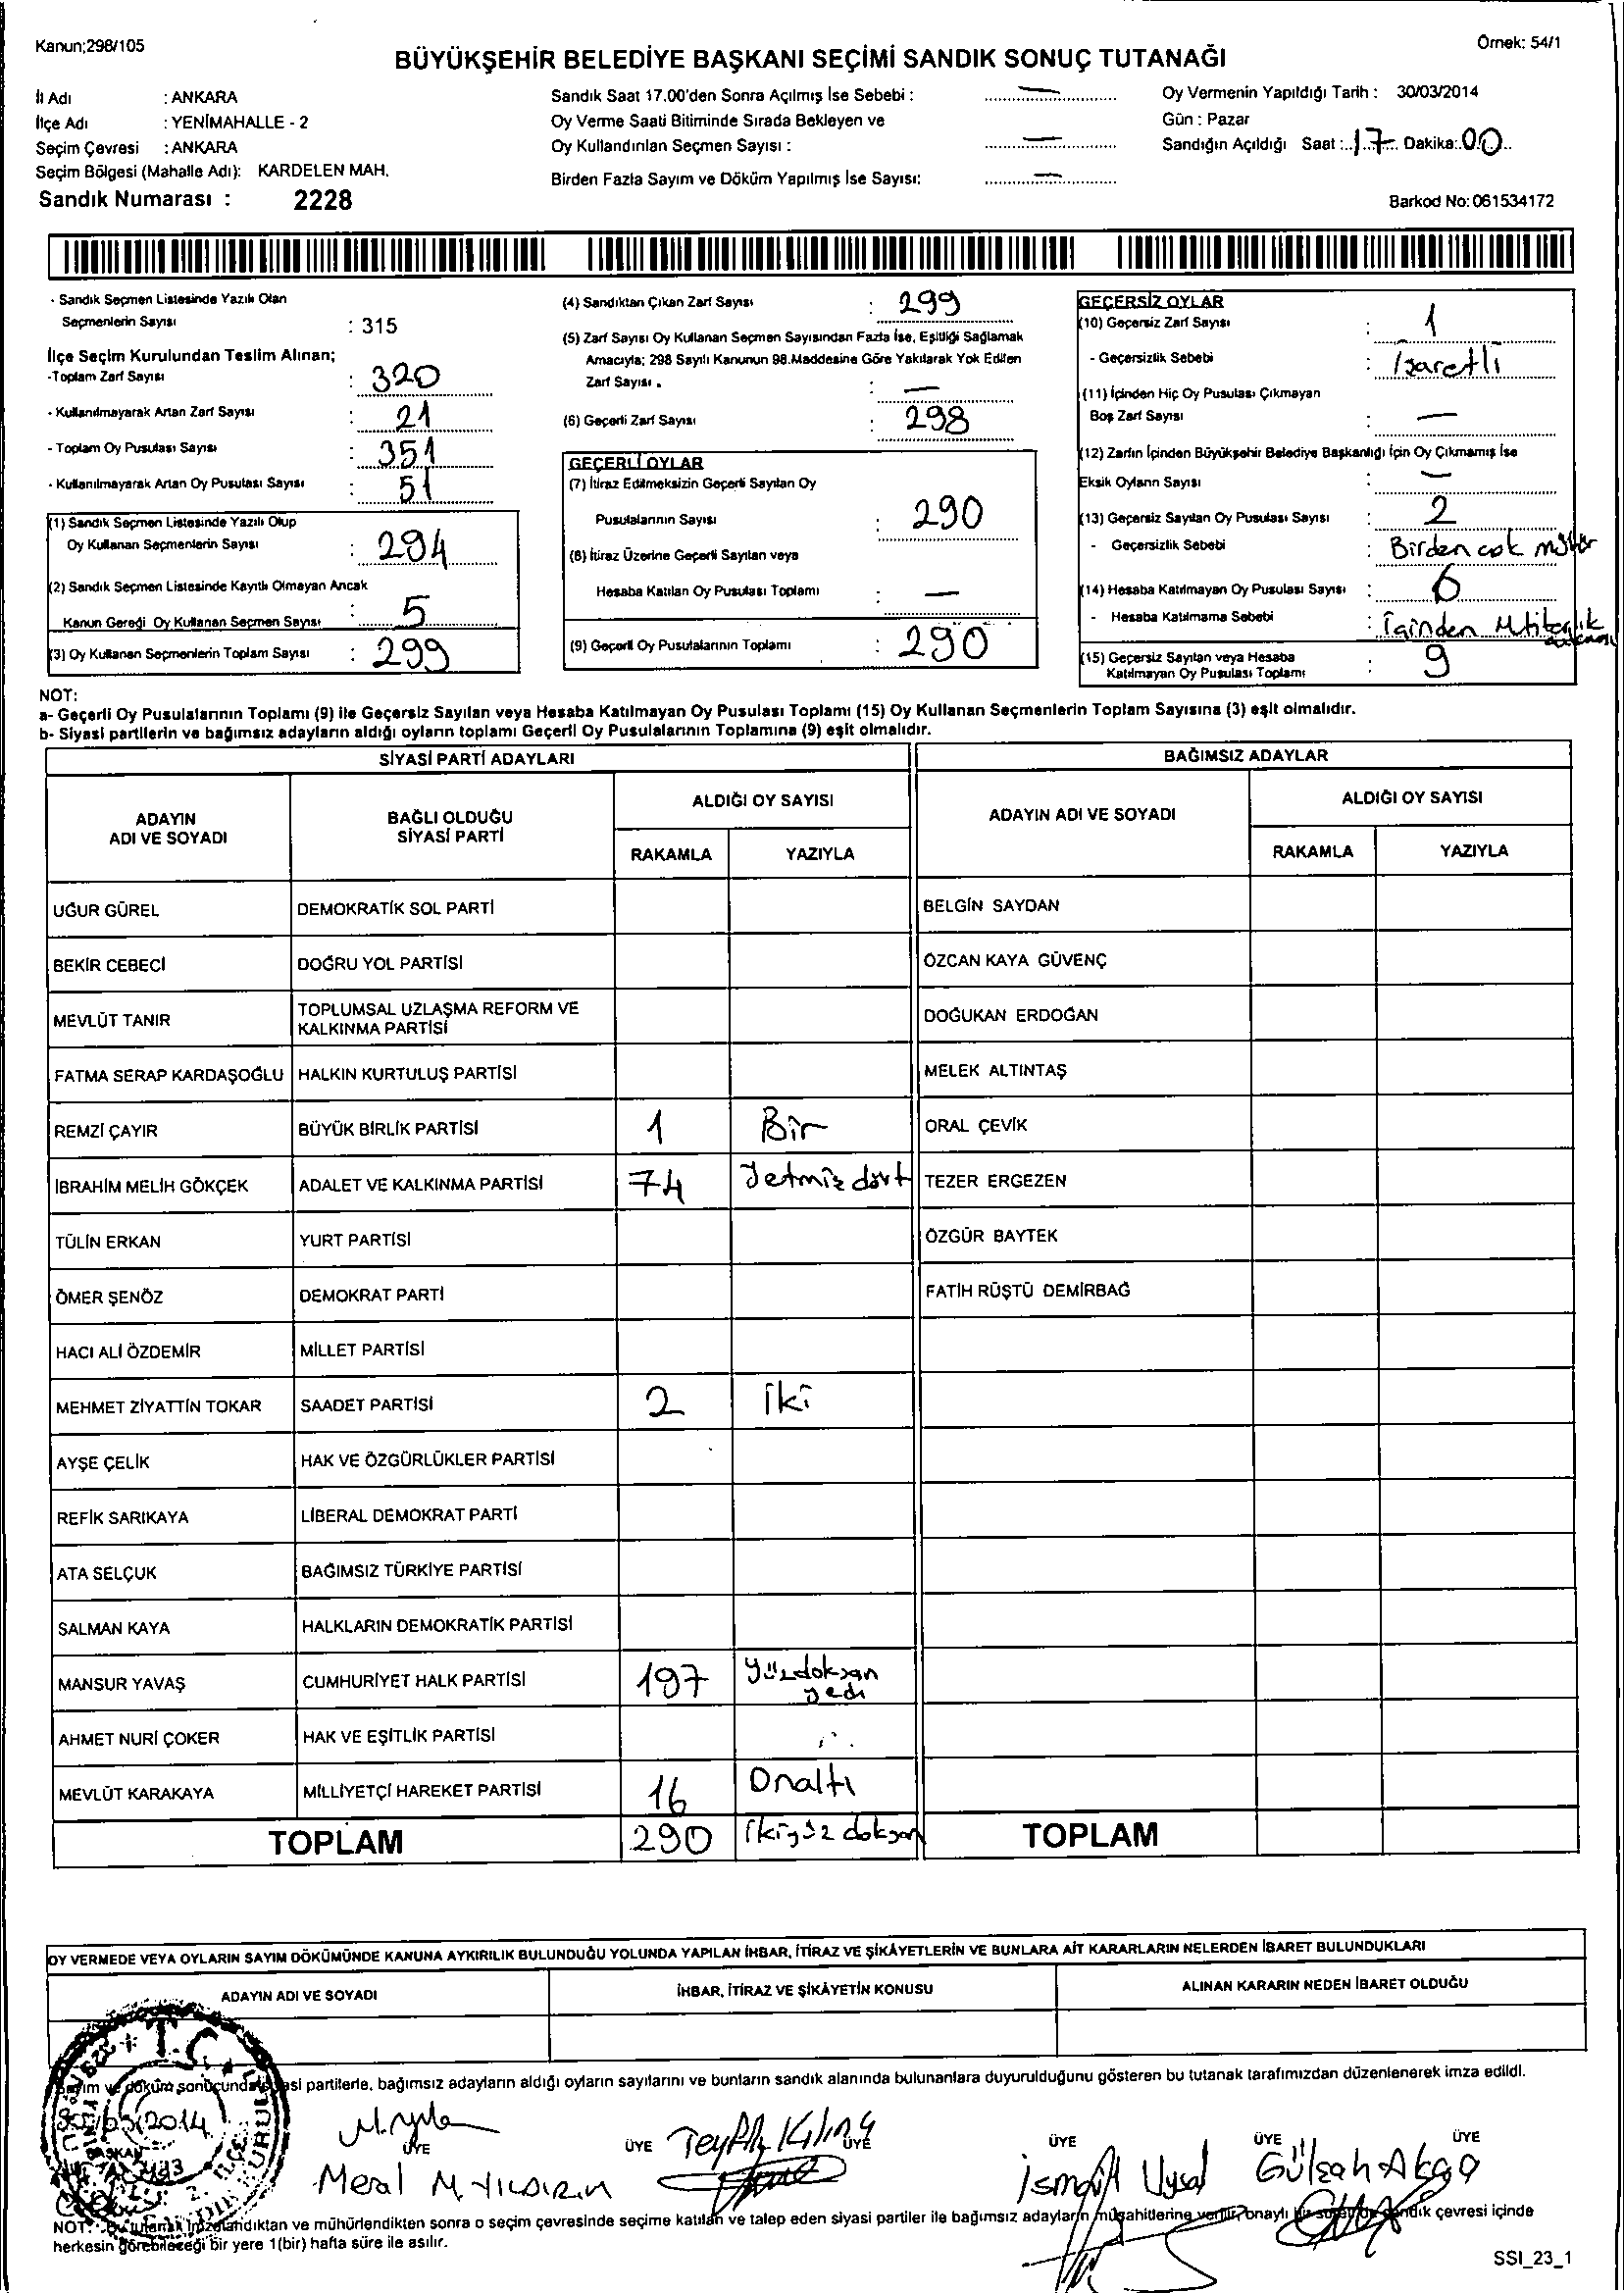 Kanun;298/105
Örnek: 54/1
BÜYÜKŞEHİR BELEDİYE BAŞKANI SEÇİMİ SANDIK SONUÇ TUTANAĞI
İl Adı : ANKARA
İlçe Adı : YENİMAHALLE - 2
Seçim Çevresi : ANKARA
Seçim Bölgesi (Mahalle Adı): KARDELEN MAH.
Sandık Numarası : 2228
Sandık Saat 17.00'den Sonra Açılmış İse Sebebi : —
Oy Verme Saati Bitiminde Sırada Bekleyen ve
Oy Kullandırılan Seçmen Sayısı : —
Birden Fazla Sayım ve Döküm Yapılmış İse Sayısı: —
Oy Vermenin Yapıldığı Tarih : 30/03/2014
Gün : Pazar
Sandığın Açıldığı Saat : 17 Dakika: 00
Barkod No: 061534172
- Sandık Seçmen Listesinde Yazılı Olan
Seçmenlerin Sayısı : 315
İlçe Seçim Kurulundan Teslim Alınan;
-Toplam Zarf Sayısı : 320
- Kullanılmayarak Artan Zarf Sayısı : 21
- Toplam Oy Pusulası Sayısı : 351
- Kullanılmayarak Artan Oy Pusulası Sayısı : 51
(1) Sandık Seçmen Listesinde Yazılı Olup
Oy Kullanan Seçmenlerin Sayısı : 294
(2) Sandık Seçmen Listesinde Kayıtlı Olmayan Ancak
Kanun Gereği Oy Kullanan Seçmen Sayısı : 5
(3) Oy Kullanan Seçmenlerin Toplam Sayısı : 299
(4) Sandıktan Çıkan Zarf Sayısı : 299
(5) Zarf Sayısı Oy Kullanan Seçmen Sayısından Fazla İse, Eşitliği Sağlamak
Amacıyla; 298 Sayılı Kanunun 98.Maddesine Göre Yakılarak Yok Edilen
Zarf Sayısı . : —
(6) Geçerli Zarf Sayısı : 298
GEÇERLİ OYLAR
(7) İtiraz Edilmeksizin Geçerli Sayılan Oy
Pusulalarının Sayısı : 290
(8) İtiraz Üzerine Geçerli Sayılan veya
Hesaba Katılan Oy Pusulası Toplamı : —
(9) Geçerli Oy Pusulalarının Toplamı : 290
GEÇERSİZ OYLAR
(10) Geçersiz Zarf Sayısı : 1
- Geçersizlik Sebebi : İşaretli
(11) İçinden Hiç Oy Pusulası Çıkmayan
Boş Zarf Sayısı : —
(12) Zarfın İçinden Büyükşehir Belediye Başkanlığı İçin Oy Çıkmamış İse
Eksik Oyların Sayısı : —
(13) Geçersiz Sayılan Oy Pusulası Sayısı : 2
- Geçersizlik Sebebi : Birden çok mühür
(14) Hesaba Katılmayan Oy Pusulası Sayısı : 6
- Hesaba Katılmama Sebebi : İçinden
(15) Geçersiz Sayılan veya Hesaba
Katılmayan Oy Pusulası Toplamı : 9
NOT:
a- Geçerli Oy Pusulalarının Toplamı (9) ile Geçersiz Sayılan veya Hesaba Katılmayan Oy Pusulası Toplamı (15) Oy Kullanan Seçmenlerin Toplam Sayısına (3) eşit olmalıdır.
b- Siyasi partilerin ve bağımsız adayların aldığı oyların toplamı Geçerli Oy Pusulalarının Toplamına (9) eşit olmalıdır.
SİYASİ PARTİ ADAYLARI
BAĞIMSIZ ADAYLAR
ADAYIN
ADI VE SOYADI
BAĞLI OLDUĞU
SİYASİ PARTİ
ALDIĞI OY SAYISI
RAKAMLA YAZIYLA
ADAYIN ADI VE SOYADI
ALDIĞI OY SAYISI
RAKAMLA YAZIYLA
UĞUR GÜREL DEMOKRATİK SOL PARTİ BELGİN SAYDAN
BEKİR CEBECİ DOĞRU YOL PARTİSİ ÖZCAN KAYA GÜVENÇ
MEVLÜT TANIR TOPLUMSAL UZLAŞMA REFORM VE
KALKINMA PARTİSİ DOĞUKAN ERDOĞAN
FATMA SERAP KARDAŞOĞLU HALKIN KURTULUŞ PARTİSİ MELEK ALTINTAŞ
REMZİ ÇAYIR BÜYÜK BİRLİK PARTİSİ 1 Bir ORAL ÇEVİK
İBRAHİM MELİH GÖKÇEK ADALET VE KALKINMA PARTİSİ 74 Yetmiş dört TEZER ERGEZEN
TÜLİN ERKAN YURT PARTİSİ ÖZGÜR BAYTEK
ÖMER ŞENÖZ DEMOKRAT PARTİ FATİH RÜŞTÜ DEMİRBAĞ
HACI ALİ ÖZDEMİR MİLLET PARTİSİ
MEHMET ZİYATTİN TOKAR SAADET PARTİSİ 2 İki
AYŞE ÇELİK HAK VE ÖZGÜRLÜKLER PARTİSİ
REFİK SARIKAYA LİBERAL DEMOKRAT PARTİ
ATA SELÇUK BAĞIMSIZ TÜRKİYE PARTİSİ
SALMAN KAYA HALKLARIN DEMOKRATİK PARTİSİ
MANSUR YAVAŞ CUMHURİYET HALK PARTİSİ 197 Yüzdoksan
yedi
AHMET NURİ ÇOKER HAK VE EŞİTLİK PARTİSİ
MEVLÜT KARAKAYA MİLLİYETÇİ HAREKET PARTİSİ 16 Onaltı
TOPLAM 290 İkiyüz doksan TOPLAM
OY VERMEDE VEYA OYLARIN SAYIM DÖKÜMÜNDE KANUNA AYKIRILIK BULUNDUĞU YOLUNDA YAPILAN İHBAR, İTİRAZ VE ŞİKÂYETLERİN VE BUNLARA AİT KARARLARIN NELERDEN İBARET BULUNDUKLARI
ADAYIN ADI VE SOYADI İHBAR, İTİRAZ VE ŞİKÂYETİN KONUSU ALINAN KARARIN NEDEN İBARET OLDUĞU
T.C.
Sayım ve döküm sonucunda siyasi partilerle, bağımsız adayların aldığı oyların sayılarını ve bunların sandık alanında bulunanlara duyurulduğunu gösteren bu tutanak tarafımızdan düzenlenerek imza edildi.
30/03/2014
BAŞKAN
ÜYE ÜYE ÜYE ÜYE ÜYE ÜYE
Meral M. YILDIRIM
Tevfik Kılınç
İsmail Uysal
Gülşah Akça
NOT: Bu tutanak imzalandıktan ve mühürlendikten sonra o seçim çevresinde seçime katılan ve talep eden siyasi partiler ile bağımsız adayların müşahitlerine verilir, onaylı bir sureti de sandık çevresi içinde
herkesin görebileceği bir yere 1(bir) hafta süre ile asılır.
SSI_23_1